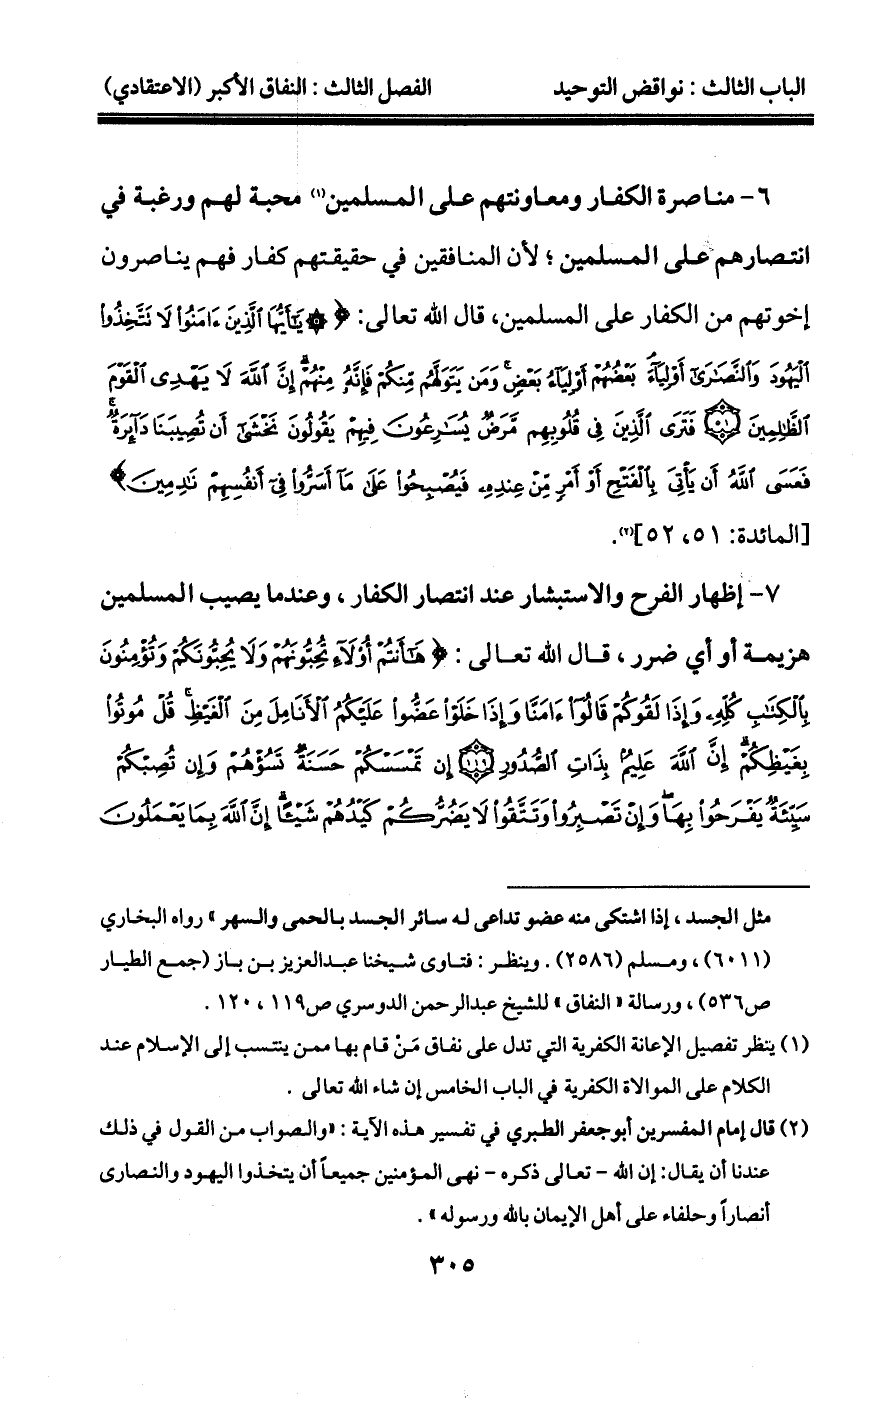 الباب الثالث : نواقض التوحيد الفصل الثالث : النفاق الأكبر (الاعتقادي)
٦- مناصرة الكفار ومعاونتهم على المسلمين(١) محبة لهم ورغبة في
انتصارهم على المسلمين ؛ لأن المنافقين في حقيقتهم كفار فهم يناصرون
إخوتهم من الكفار على المسلمين، قال الله تعالى: ﴿ ۞ يَٰٓأَيُّهَا ٱلَّذِينَ ءَامَنُوا۟ لَا تَتَّخِذُوا۟
ٱلْيَهُودَ وَٱلنَّصَٰرَىٰٓ أَوْلِيَآءَ ۘ بَعْضُهُمْ أَوْلِيَآءُ بَعْضٍ ۚ وَمَن يَتَوَلَّهُم مِّنكُمْ فَإِنَّهُۥ مِنْهُمْ ۗ إِنَّ ٱللَّهَ لَا يَهْدِى ٱلْقَوْمَ
ٱلظَّٰلِمِينَ ۝٥١ فَتَرَى ٱلَّذِينَ فِى قُلُوبِهِم مَّرَضٌ يُسَٰرِعُونَ فِيهِمْ يَقُولُونَ نَخْشَىٰٓ أَن تُصِيبَنَا دَآئِرَةٌ ۚ
فَعَسَى ٱللَّهُ أَن يَأْتِىَ بِٱلْفَتْحِ أَوْ أَمْرٍ مِّنْ عِندِهِۦ فَيُصْبِحُوا۟ عَلَىٰ مَآ أَسَرُّوا۟ فِىٓ أَنفُسِهِمْ نَٰدِمِينَ ﴾
[المائدة: ٥١، ٥٢](٢).
٧- إظهار الفرح والاستبشار عند انتصار الكفار ، وعندما يصيب المسلمين
هزيمة أو أي ضرر ، قال الله تعالى : ﴿ هَٰٓأَنتُمْ أُو۟لَآءِ تُحِبُّونَهُمْ وَلَا يُحِبُّونَكُمْ وَتُؤْمِنُونَ
بِٱلْكِتَٰبِ كُلِّهِۦ وَإِذَا لَقُوكُمْ قَالُوٓا۟ ءَامَنَّا وَإِذَا خَلَوْا۟ عَضُّوا۟ عَلَيْكُمُ ٱلْأَنَامِلَ مِنَ ٱلْغَيْظِ ۚ قُلْ مُوتُوا۟
بِغَيْظِكُمْ ۗ إِنَّ ٱللَّهَ عَلِيمٌۢ بِذَاتِ ٱلصُّدُورِ ۝١١٩ إِن تَمْسَسْكُمْ حَسَنَةٌ تَسُؤْهُمْ وَإِن تُصِبْكُمْ
سَيِّئَةٌ يَفْرَحُوا۟ بِهَا ۖ وَإِن تَصْبِرُوا۟ وَتَتَّقُوا۟ لَا يَضُرُّكُمْ كَيْدُهُمْ شَيْـًٔا ۗ إِنَّ ٱللَّهَ بِمَا يَعْمَلُونَ
مثل الجسد ، إذا اشتكى منه عضو تداعى له سائر الجسد بالحمى والسهر » رواه البخاري
(٦٠١١) ، ومسلم (٢٥٨٦) . وينظر : فتاوى شيخنا عبدالعزيز بن باز (جمع الطيار
ص٥٣٦) ، ورسالة « النفاق » للشيخ عبدالرحمن الدوسري ص١١٩ ، ١٢٠ .
(١) ينظر تفصيل الإعانة الكفرية التي تدل على نفاق مَنْ قام بها ممن ينتسب إلى الإسلام عند
الكلام على الموالاة الكفرية في الباب الخامس إن شاء الله تعالى .
(٢) قال إمام المفسرين أبوجعفر الطبري في تفسير هذه الآية : «والصواب من القول في ذلك
عندنا أن يقال: إن الله - تعالى ذكره - نهى المؤمنين جميعاً أن يتخذوا اليهود والنصارى
أنصاراً وحلفاء على أهل الإيمان بالله ورسوله» .
٣٠٥